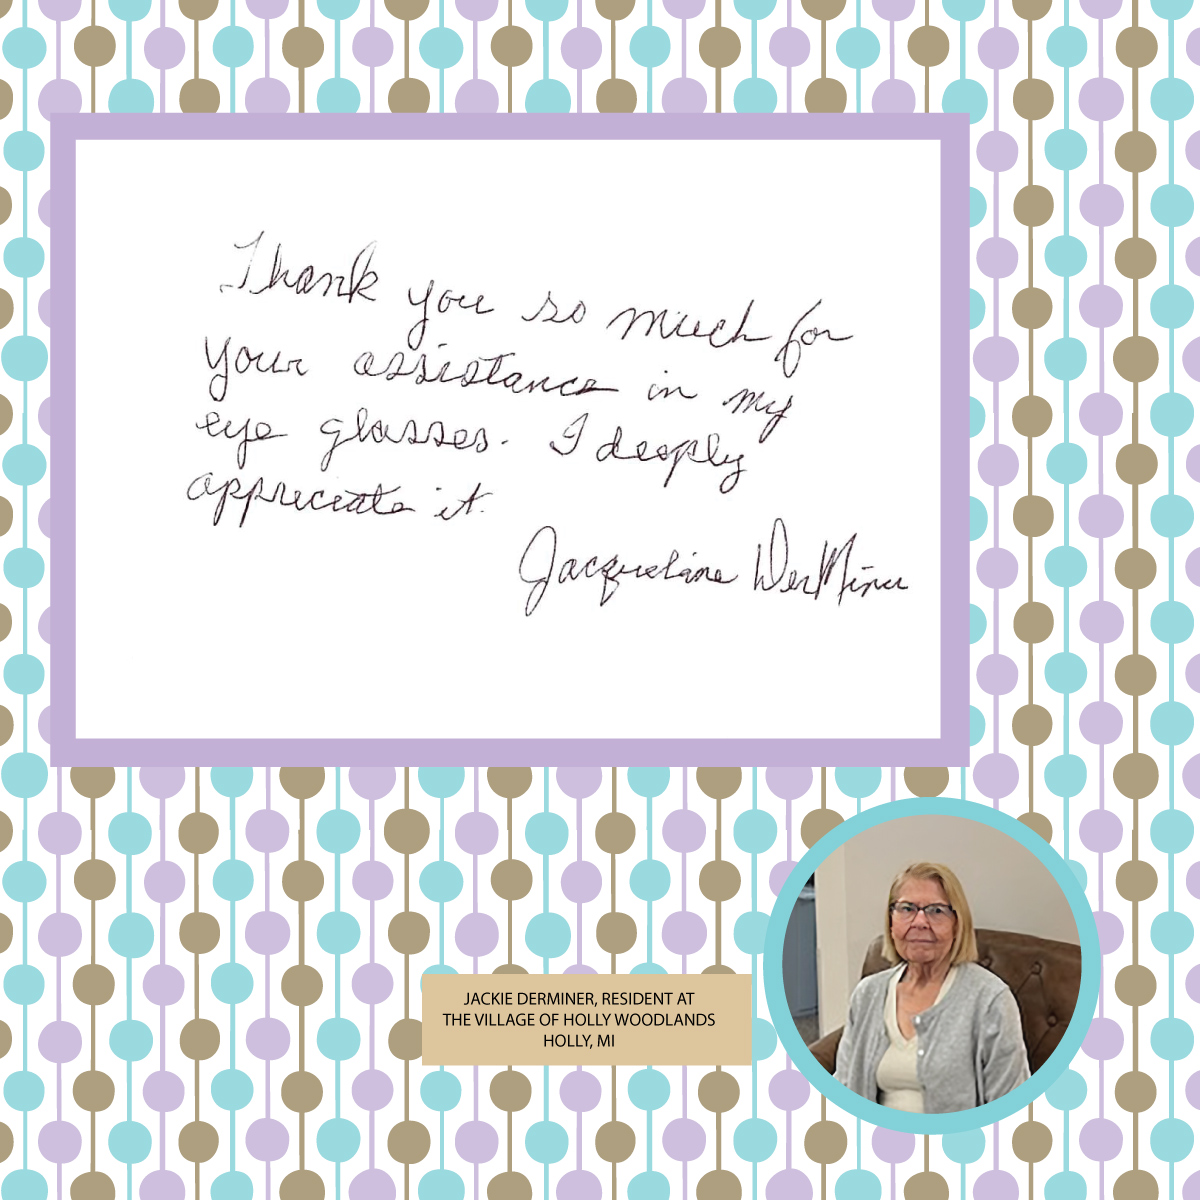 Thank you so much for
your assistance in my
eye glasses. I deeply
appreciate it.
Jacqueline DerMiner
JACKIE DERMINER, RESIDENT AT
THE VILLAGE OF HOLLY WOODLANDS
HOLLY, MI